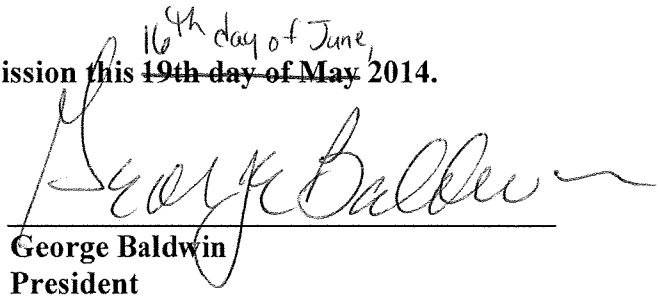 16th day of June,
ission this 19th day of May 2014.
George Baldwin
George Baldwin
President